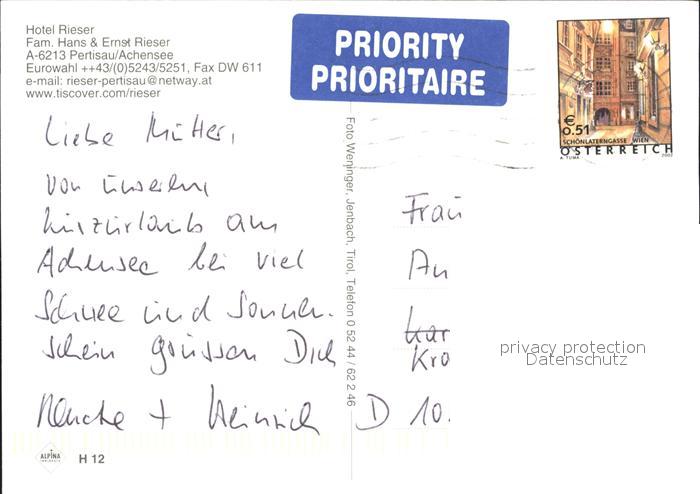 Hotel Rieser
Fam. Hans & Ernst Rieser
A-6213 Pertisau/Achensee
Eurowahl ++43/(0)5243/5251, Fax DW 611
e-mail: rieser-pertisau@netway.at
www.tiscover.com/rieser
PRIORITY
PRIORITAIRE
€
0.51
SCHÖNLATERNGASSE WIEN
ÖSTERREICH
A. TUMA 2002
Liebe Mutter,
von unserem
Kurzurlaub am
Achensee bei viel
Schnee und Sonnen-
schein grüssen Dich
+ Heinrich
Foto Weninger, Jenbach, Tirol, Telefon 0 52 44 / 62 2 46
Frau
An
Kar
Kro
D 10.
privacy protection
Datenschutz
ALPINA
H 12